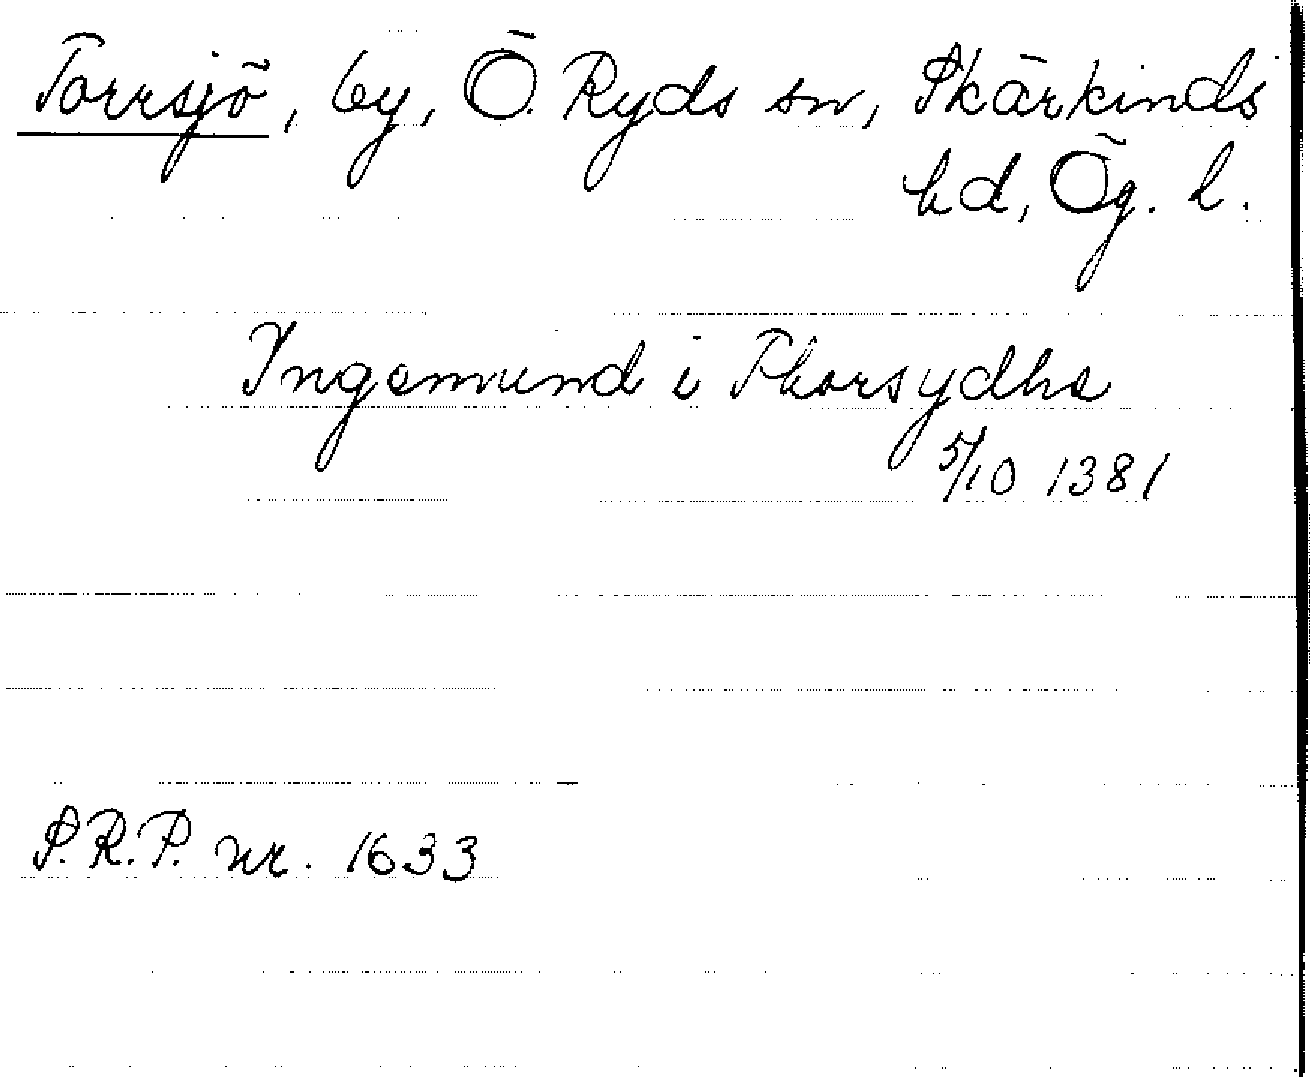 Torrsjö, by, Ö. Ryds sn, Skärkinds
hd, Ög. l.
Ingemund i Thorsydhe
5/10 1381
S.R.P. nr. 1633